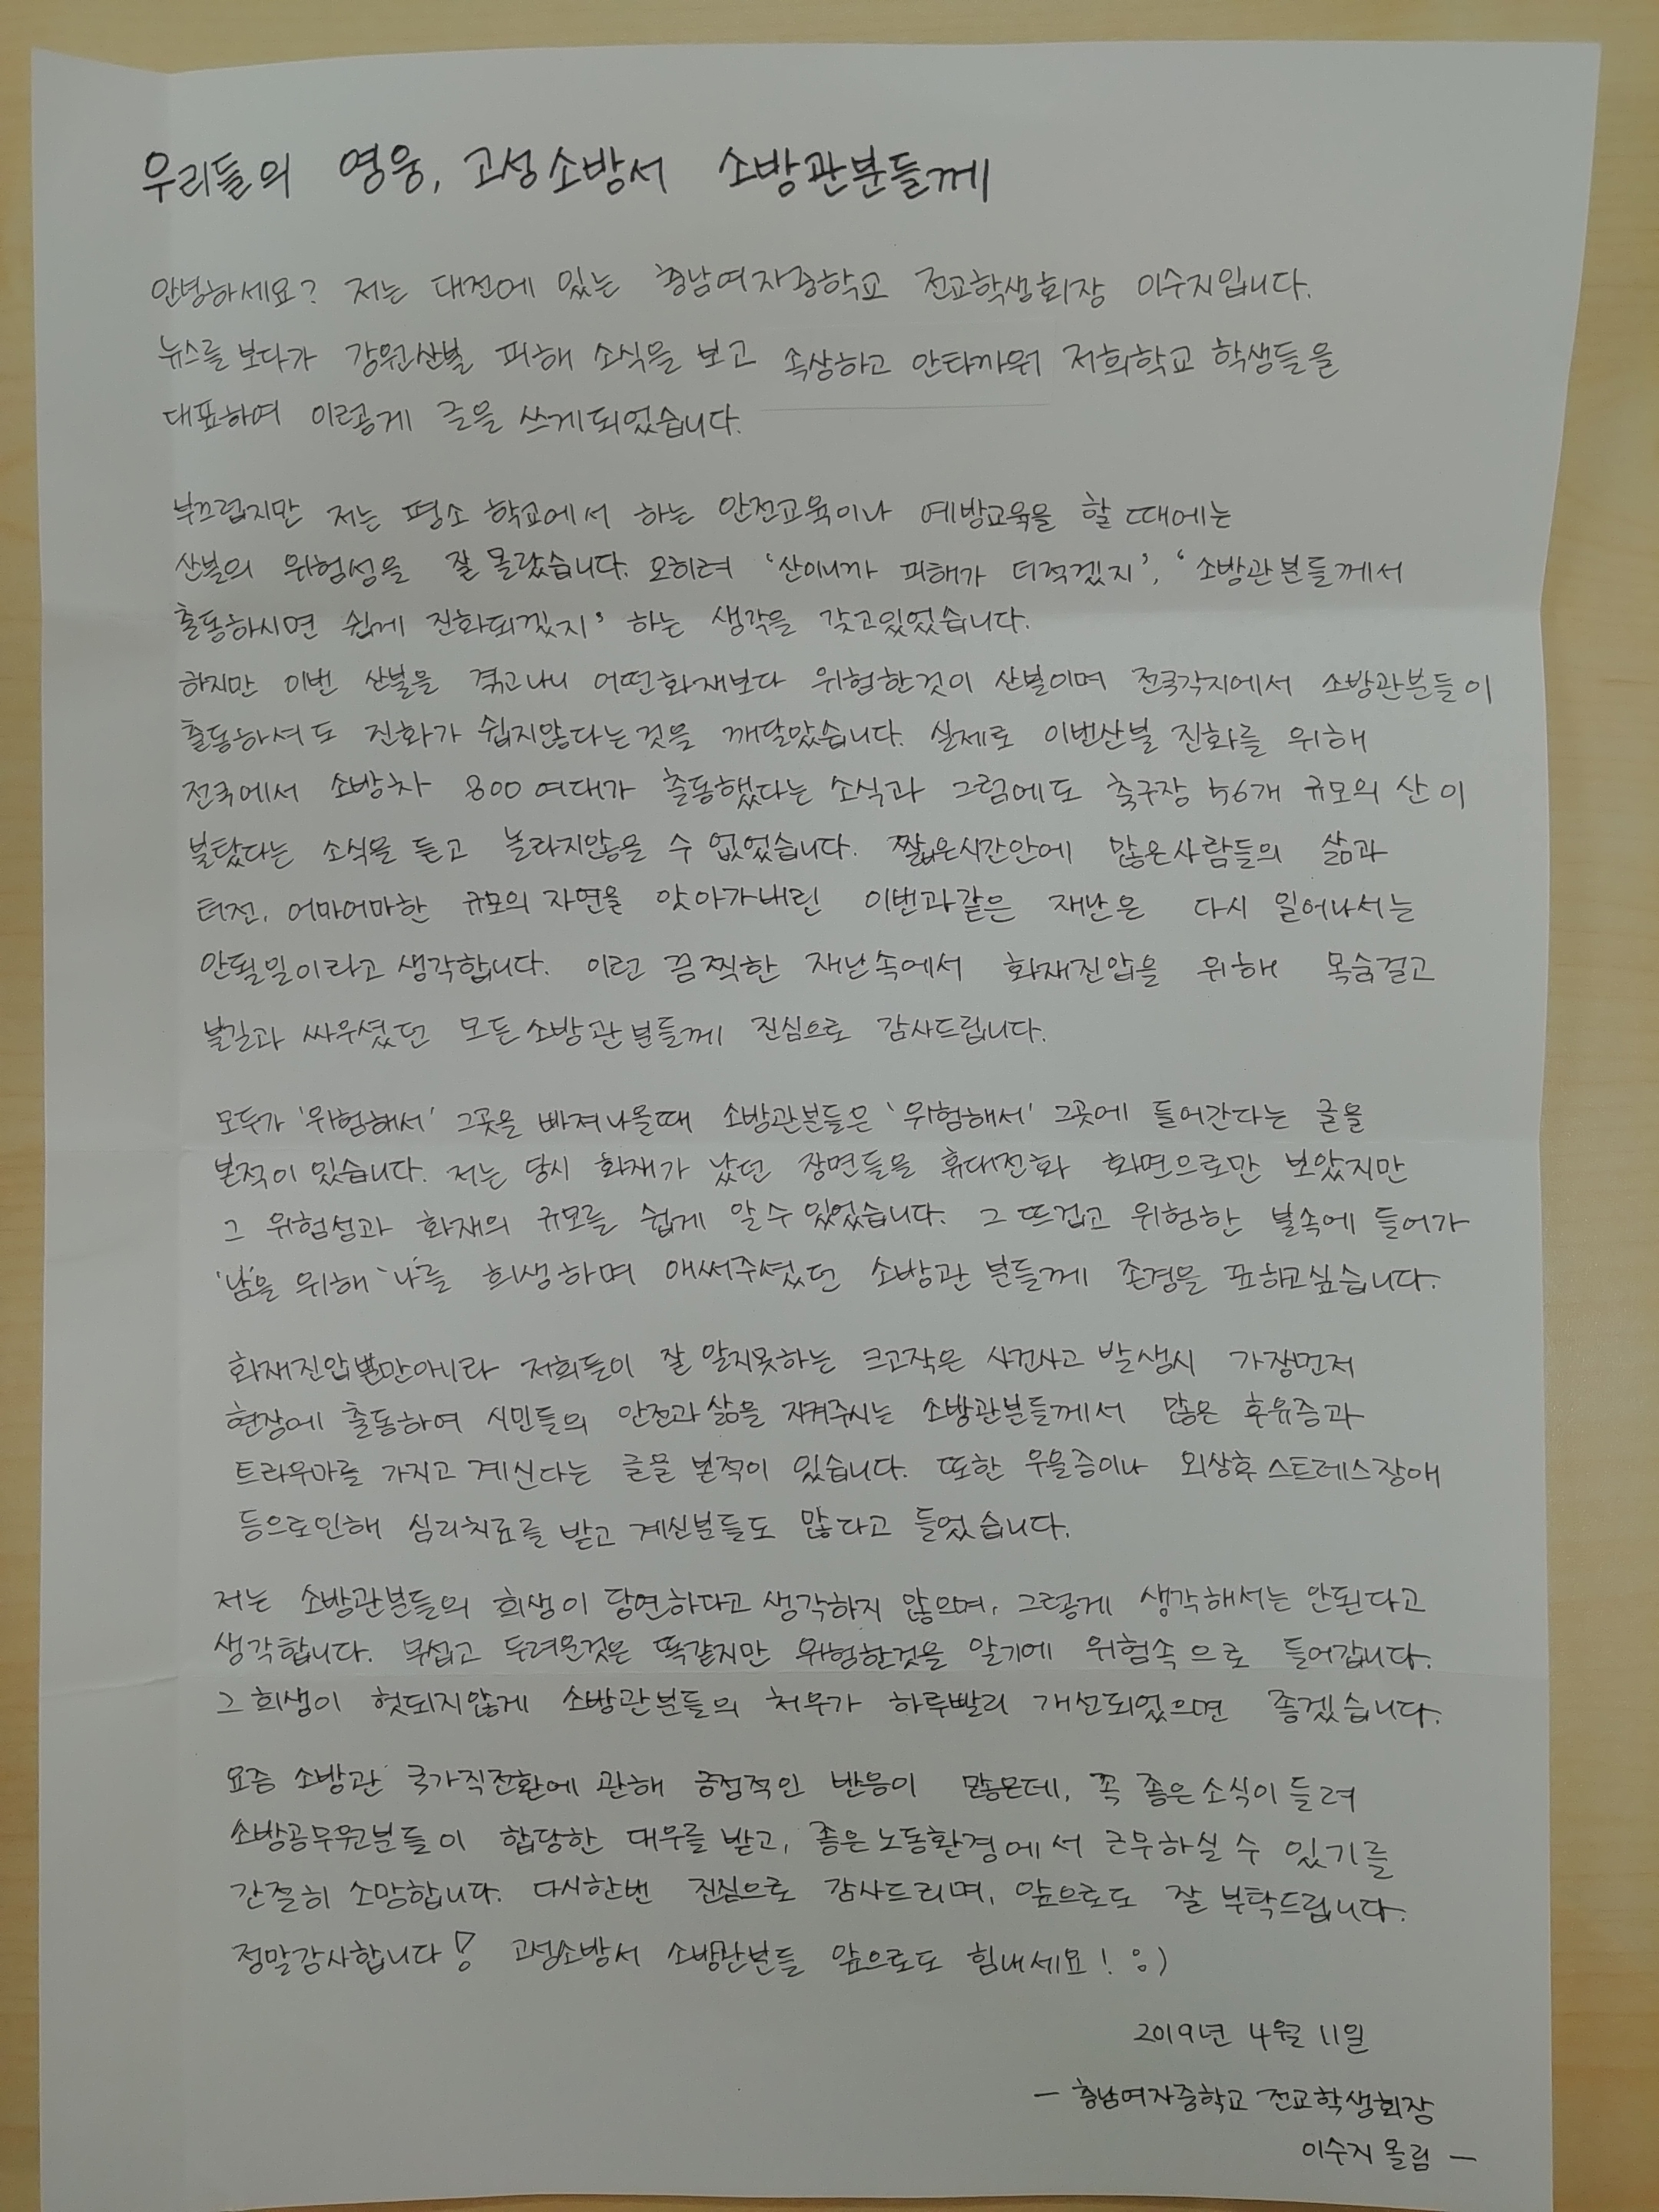 우리들의 영웅, 고성소방서 소방관분들께
안녕하세요? 저는 대전에 있는 충남여자중학교 전교학생회장 이수지입니다.
뉴스를 보다가 강원산불 피해 소식을 보고 속상하고 안타까워 저희학교 학생들을
대표하여 이렇게 글을 쓰게되었습니다.
부끄럽지만 저는 평소 학교에서 하는 안전교육이나 예방교육을 할 때에는
산불의 위험성을 잘 몰랐습니다. 오히려 '산이니까 피해가 더적겠지', '소방관분들께서
출동하시면 쉽게 진화되겠지' 하는 생각을 갖고있었습니다.
하지만 이번 산불을 겪고나니 어떤화재보다 위험한것이 산불이며 전국각지에서 소방관분들이
출동하셔도 진화가 쉽지않다는것을 깨달았습니다. 실제로 이번산불 진화를 위해
전국에서 소방차 800여대가 출동했다는 소식과 그럼에도 축구장 756개 규모의 산이
불탔다는 소식을 듣고 놀라지않을 수 없었습니다. 짧은시간안에 많은사람들의 삶과
터전, 어마어마한 규모의 자연을 앗아가버린 이번과같은 재난은 다시 일어나서는
안될일이라고 생각합니다. 이런 끔찍한 재난속에서 화재진압을 위해 목숨걸고
불길과 싸우셨던 모든소방관분들께 진심으로 감사드립니다.
모두가 '위험해서' 그곳을 빠져나올때 소방관분들은 '위험해서' 그곳에 들어간다는 글을
본적이 있습니다. 저는 당시 화재가 났던 장면들을 휴대전화 화면으로만 보았지만
그 위험성과 화재의 규모를 쉽게 알수있었습니다. 그 뜨겁고 위험한 불속에 들어가
'남'을 위해 '나'를 희생하며 애써주셨던 소방관분들께 존경을 표하고싶습니다.
화재진압뿐만아니라 저희들이 잘 알지못하는 크고작은 사건사고 발생시 가장먼저
현장에 출동하여 시민들의 안전과 삶을 지켜주시는 소방관분들께서 많은 후유증과
트라우마를 가지고 계신다는 글을 본적이 있습니다. 또한 우울증이나 외상후스트레스장애
등으로인해 심리치료를 받고 계신분들도 많다고 들었습니다.
저는 소방관분들의 희생이 당연하다고 생각하지 않으며, 그렇게 생각해서는 안된다고
생각합니다. 무섭고 두려운것은 똑같지만 위험한것을 알기에 위험속으로 들어갑니다.
그 희생이 헛되지않게 소방관분들의 처우가 하루빨리 개선되었으면 좋겠습니다.
요즘 소방관 국가직전환에 관해 긍정적인 반응이 많은데, 꼭 좋은소식이 들려
소방공무원분들이 합당한 대우를 받고, 좋은노동환경에서 근무하실 수 있기를
간절히 소망합니다. 다시한번 진심으로 감사드리며, 앞으로도 잘 부탁드립니다.
정말감사합니다! 고성소방서 소방관분들 앞으로도 힘내세요! :)
2019년 4월 11일
— 충남여자중학교 전교학생회장
이수지 올림 —